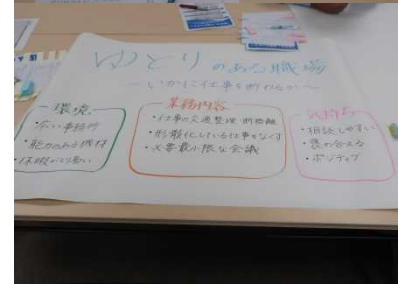 ゆとりのある職場
〜いかに仕事を断わるか〜
環境
・広い事務所
・能力のある機材
・休暇がとり易い
業務内容
・仕事の交通整理・断捨離
・形骸化している仕事をなくす
・必要最小限な会議
気持ち
・相談しやすい
・褒め合える
・ポジティブ